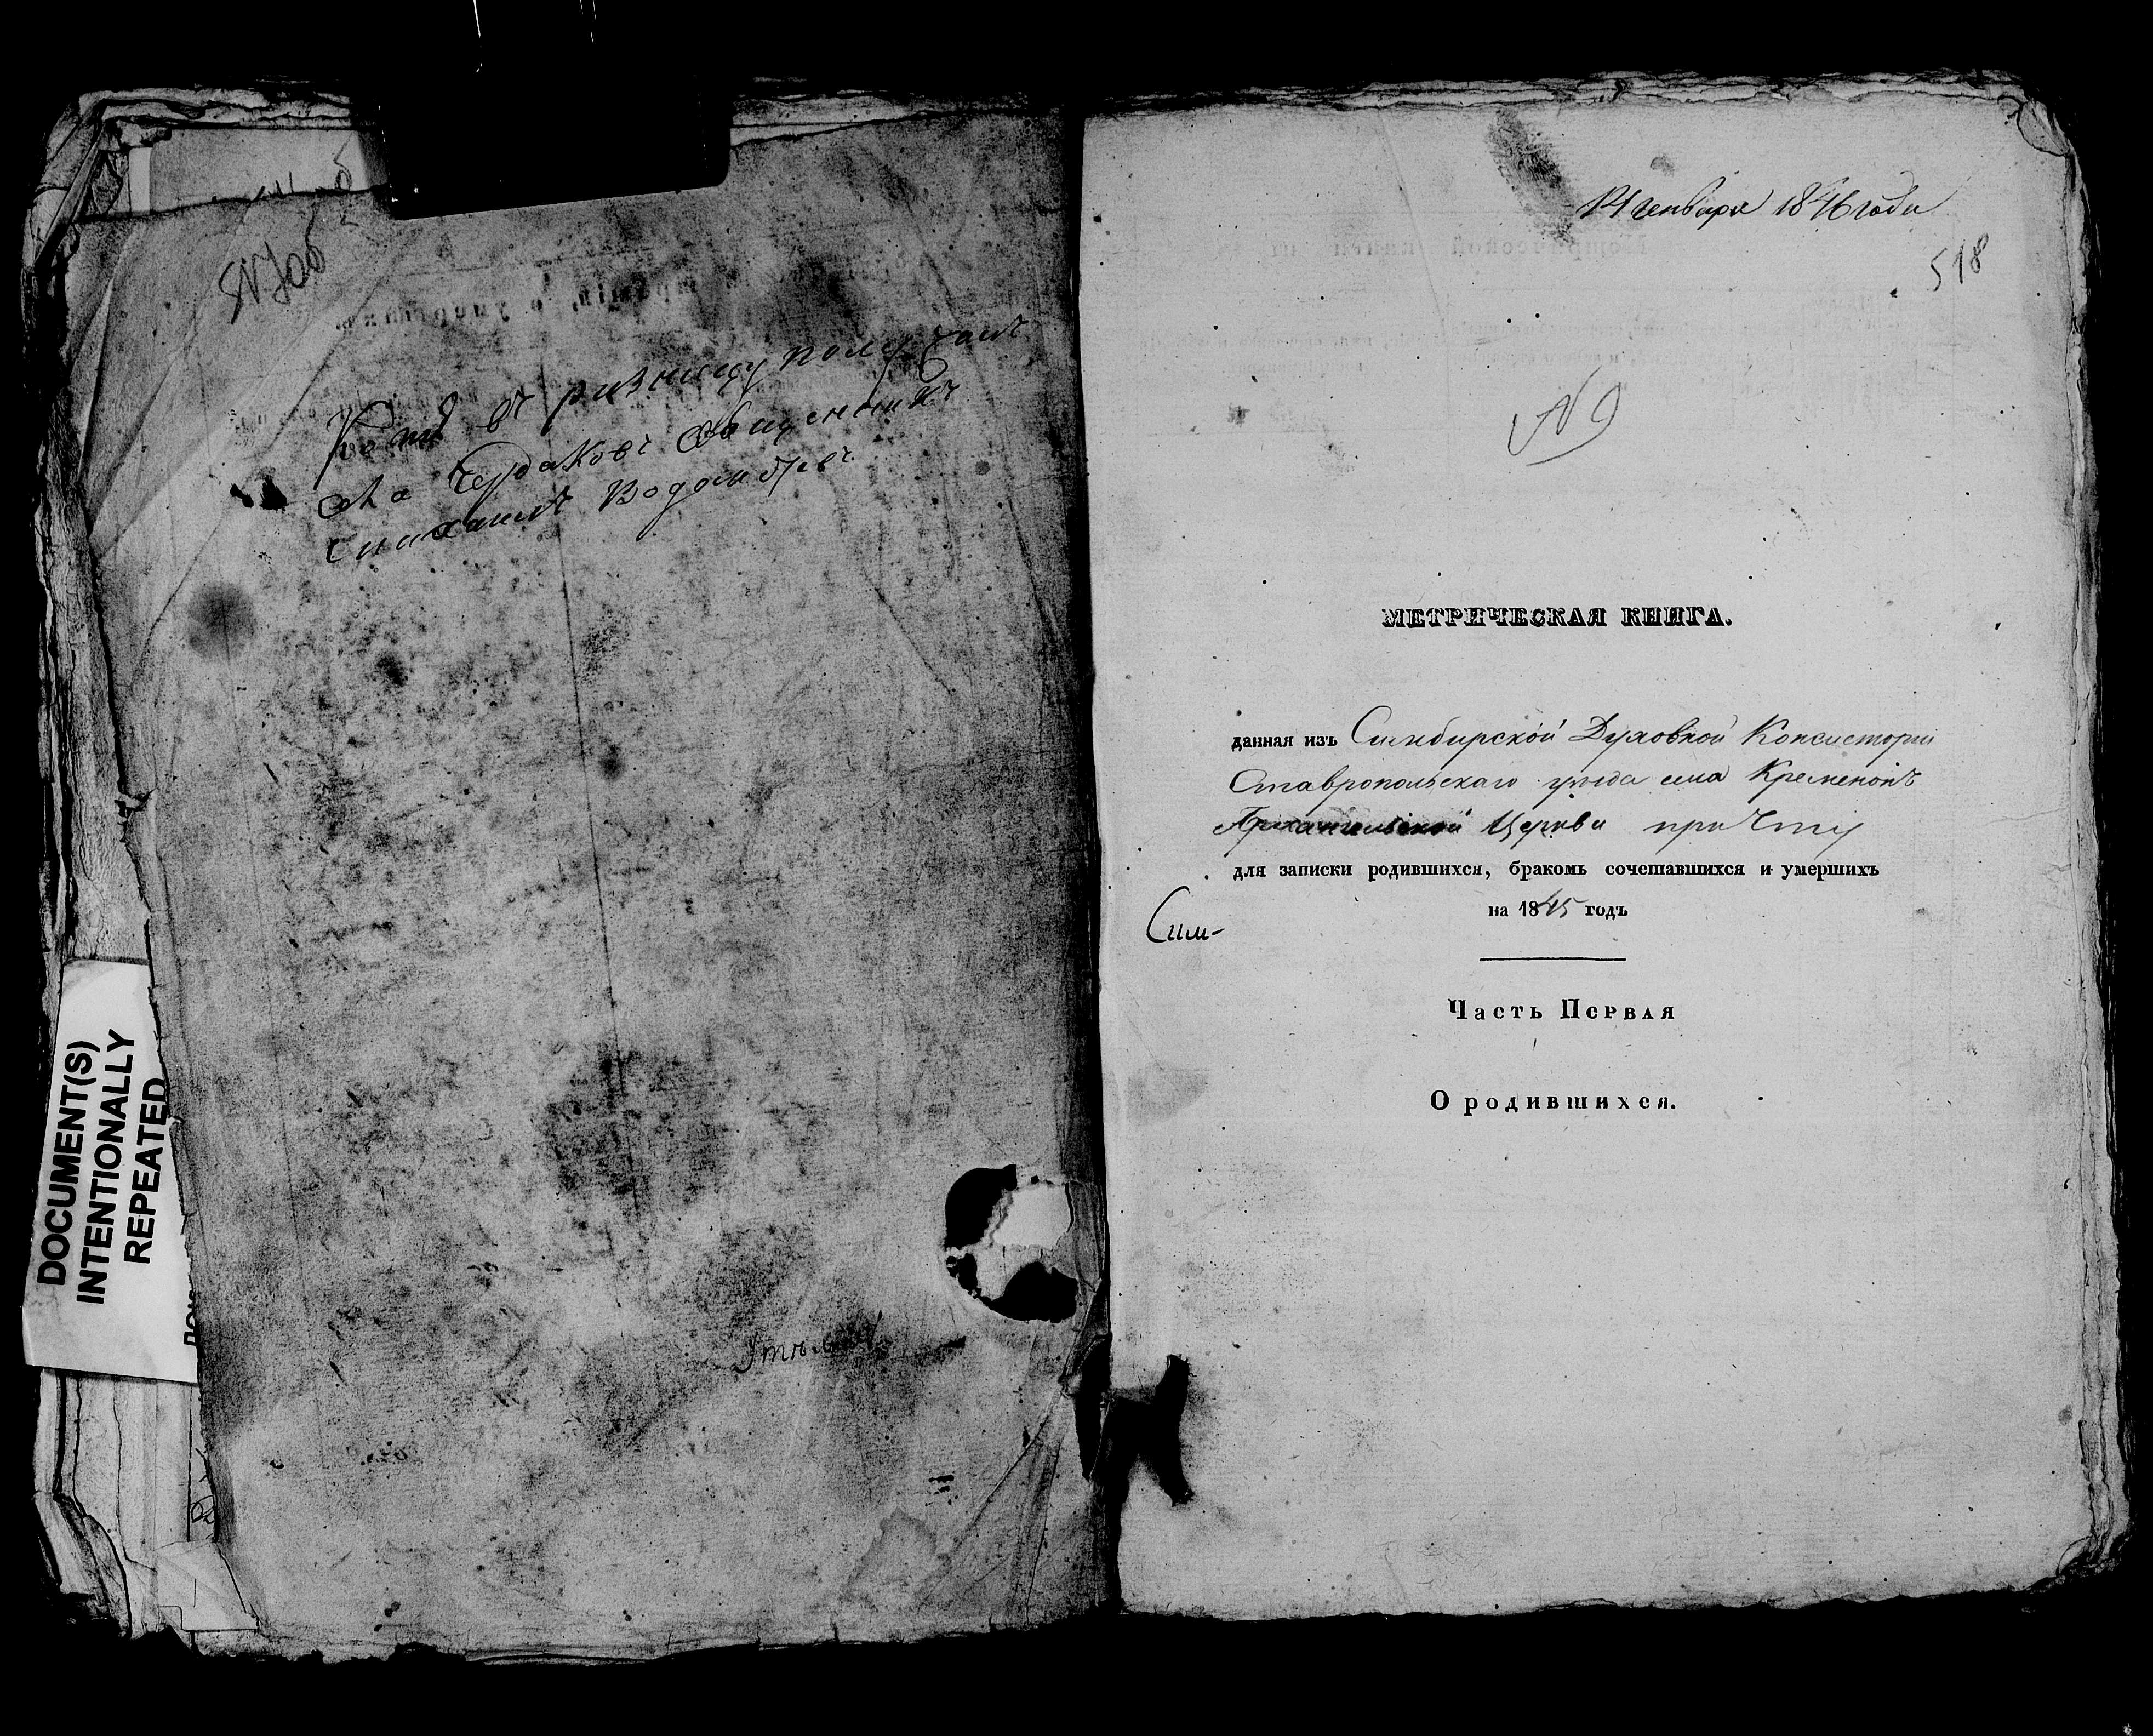 Копію въ ризницу получилъ
села Чердаковъ Священникъ
Михаилъ Водолеевъ
DOCUMENT(S)
INTENTIONALLY
REPEATED
14 генваря 1846 года
518
N 9
МЕТРИЧЕСКАЯ КНИГА.
данная изъ Симбирской Духовной Консисторіи
Ставропольскаго уѣзда села Кременокъ
Архангельской Церкви причту
для записки родившихся, бракомъ сочетавшихся и умершихъ
на 1845 годъ
Сим-
Часть Первая
О родившихся.